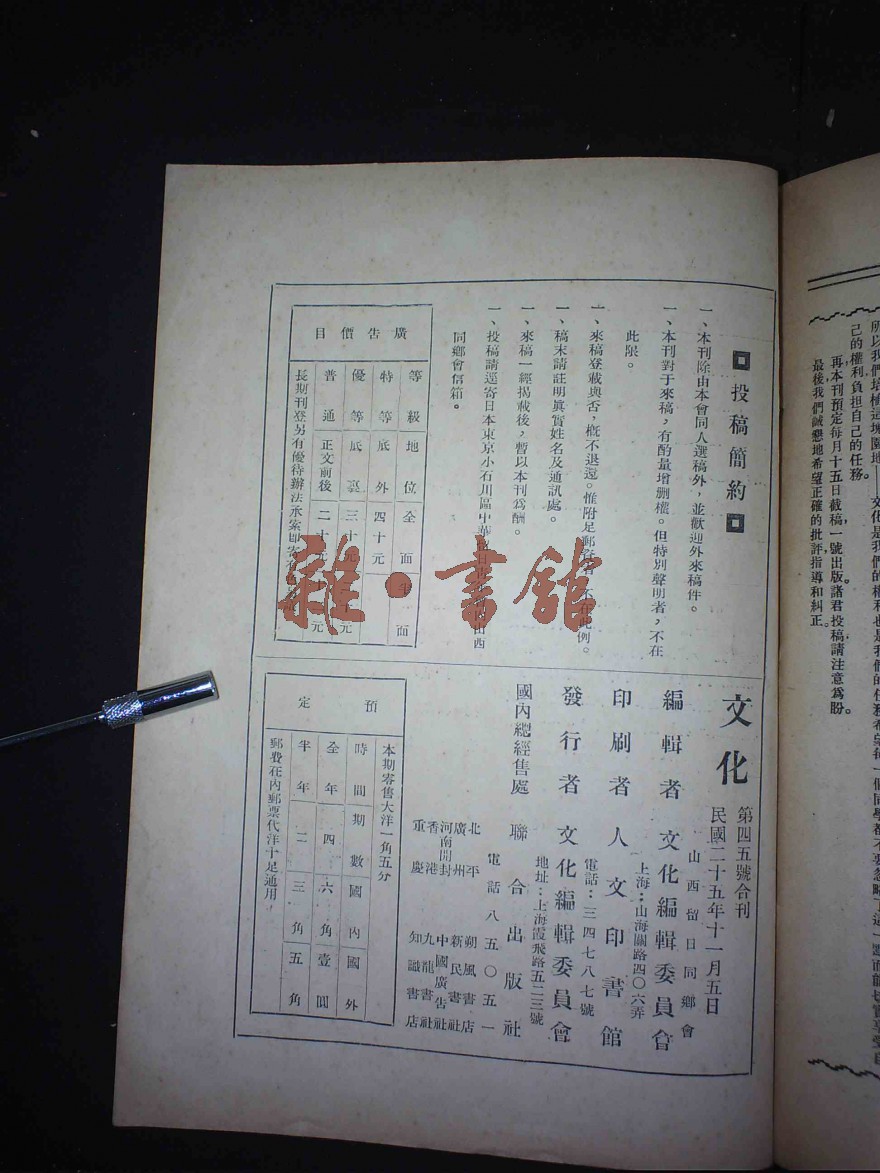 投稿簡約
一、本刊除由本會同人選稿外，並歡迎外來稿件。
一、本刊對于來稿，有酌量增删權。但特別聲明者，不在
此限。
一、來稿登載與否，概不退還。惟附足郵者，不在此例。
一、稿末請註明眞實姓名及通訊處。
一、來稿一經揭載後，暫以本刊爲酬。
一、投稿請逕寄日本東京小石川區中華日山西
同鄉會信箱。
廣告價目
等級 地位 全面 半面
特等 底外 四十元
優等 底裏 三十元 元
普通 正文前後 二十元 元
長期刊登另有優待辦法承索即寄
文化
第四五號合刊
民國二十五年十一月五日
山西留日同鄉會
編輯者 文化編輯委員會
上海：山海關路四〇六弄
印刷者 人文印書館
電話：三四七八七號
發行者 文化編輯委員會
地址：上海霞飛路五二三號
國內總經售處 聯合出版社
電話八五〇五一
北平 朔風書店
廣州 新民書社
河南開封 中國廣告社
香港 九龍書社
重慶 知識書店
預定
本期零售大洋一角五分
時間 期數 國內 國外
全年 四 六角 壹圓
半年 二 三角 五角
郵費在內郵票代洋十足通用
雜·書館
己的權利負担自己的任務。
再，本刊預定每月十五日截稿，一號出版，諸君投稿請注意爲盼。
最後我們誠懇地希望正確的批評指導和糾正。